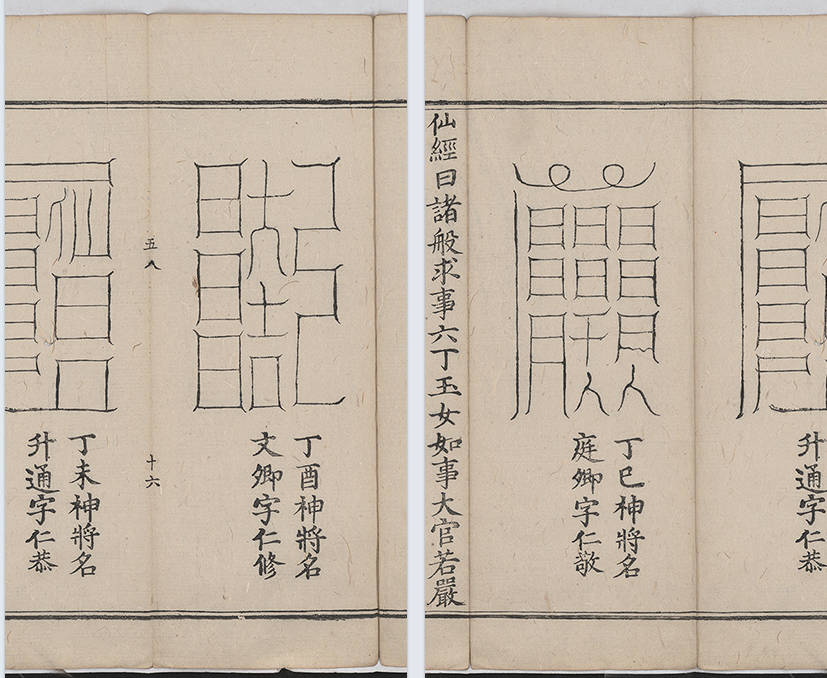 丁酉神將名
文卿字仁修
五八
十六
丁未神將名
升通字仁恭
升通字仁恭
丁巳神將名
庭卿字仁敬
仙經曰諸般求事六丁玉女如事大官若嚴